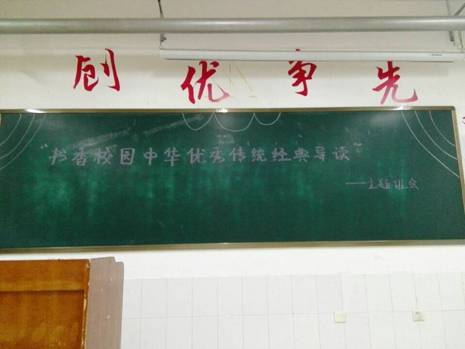 创优争先
"书香校园中华优秀传统经典导读"
——主题班会